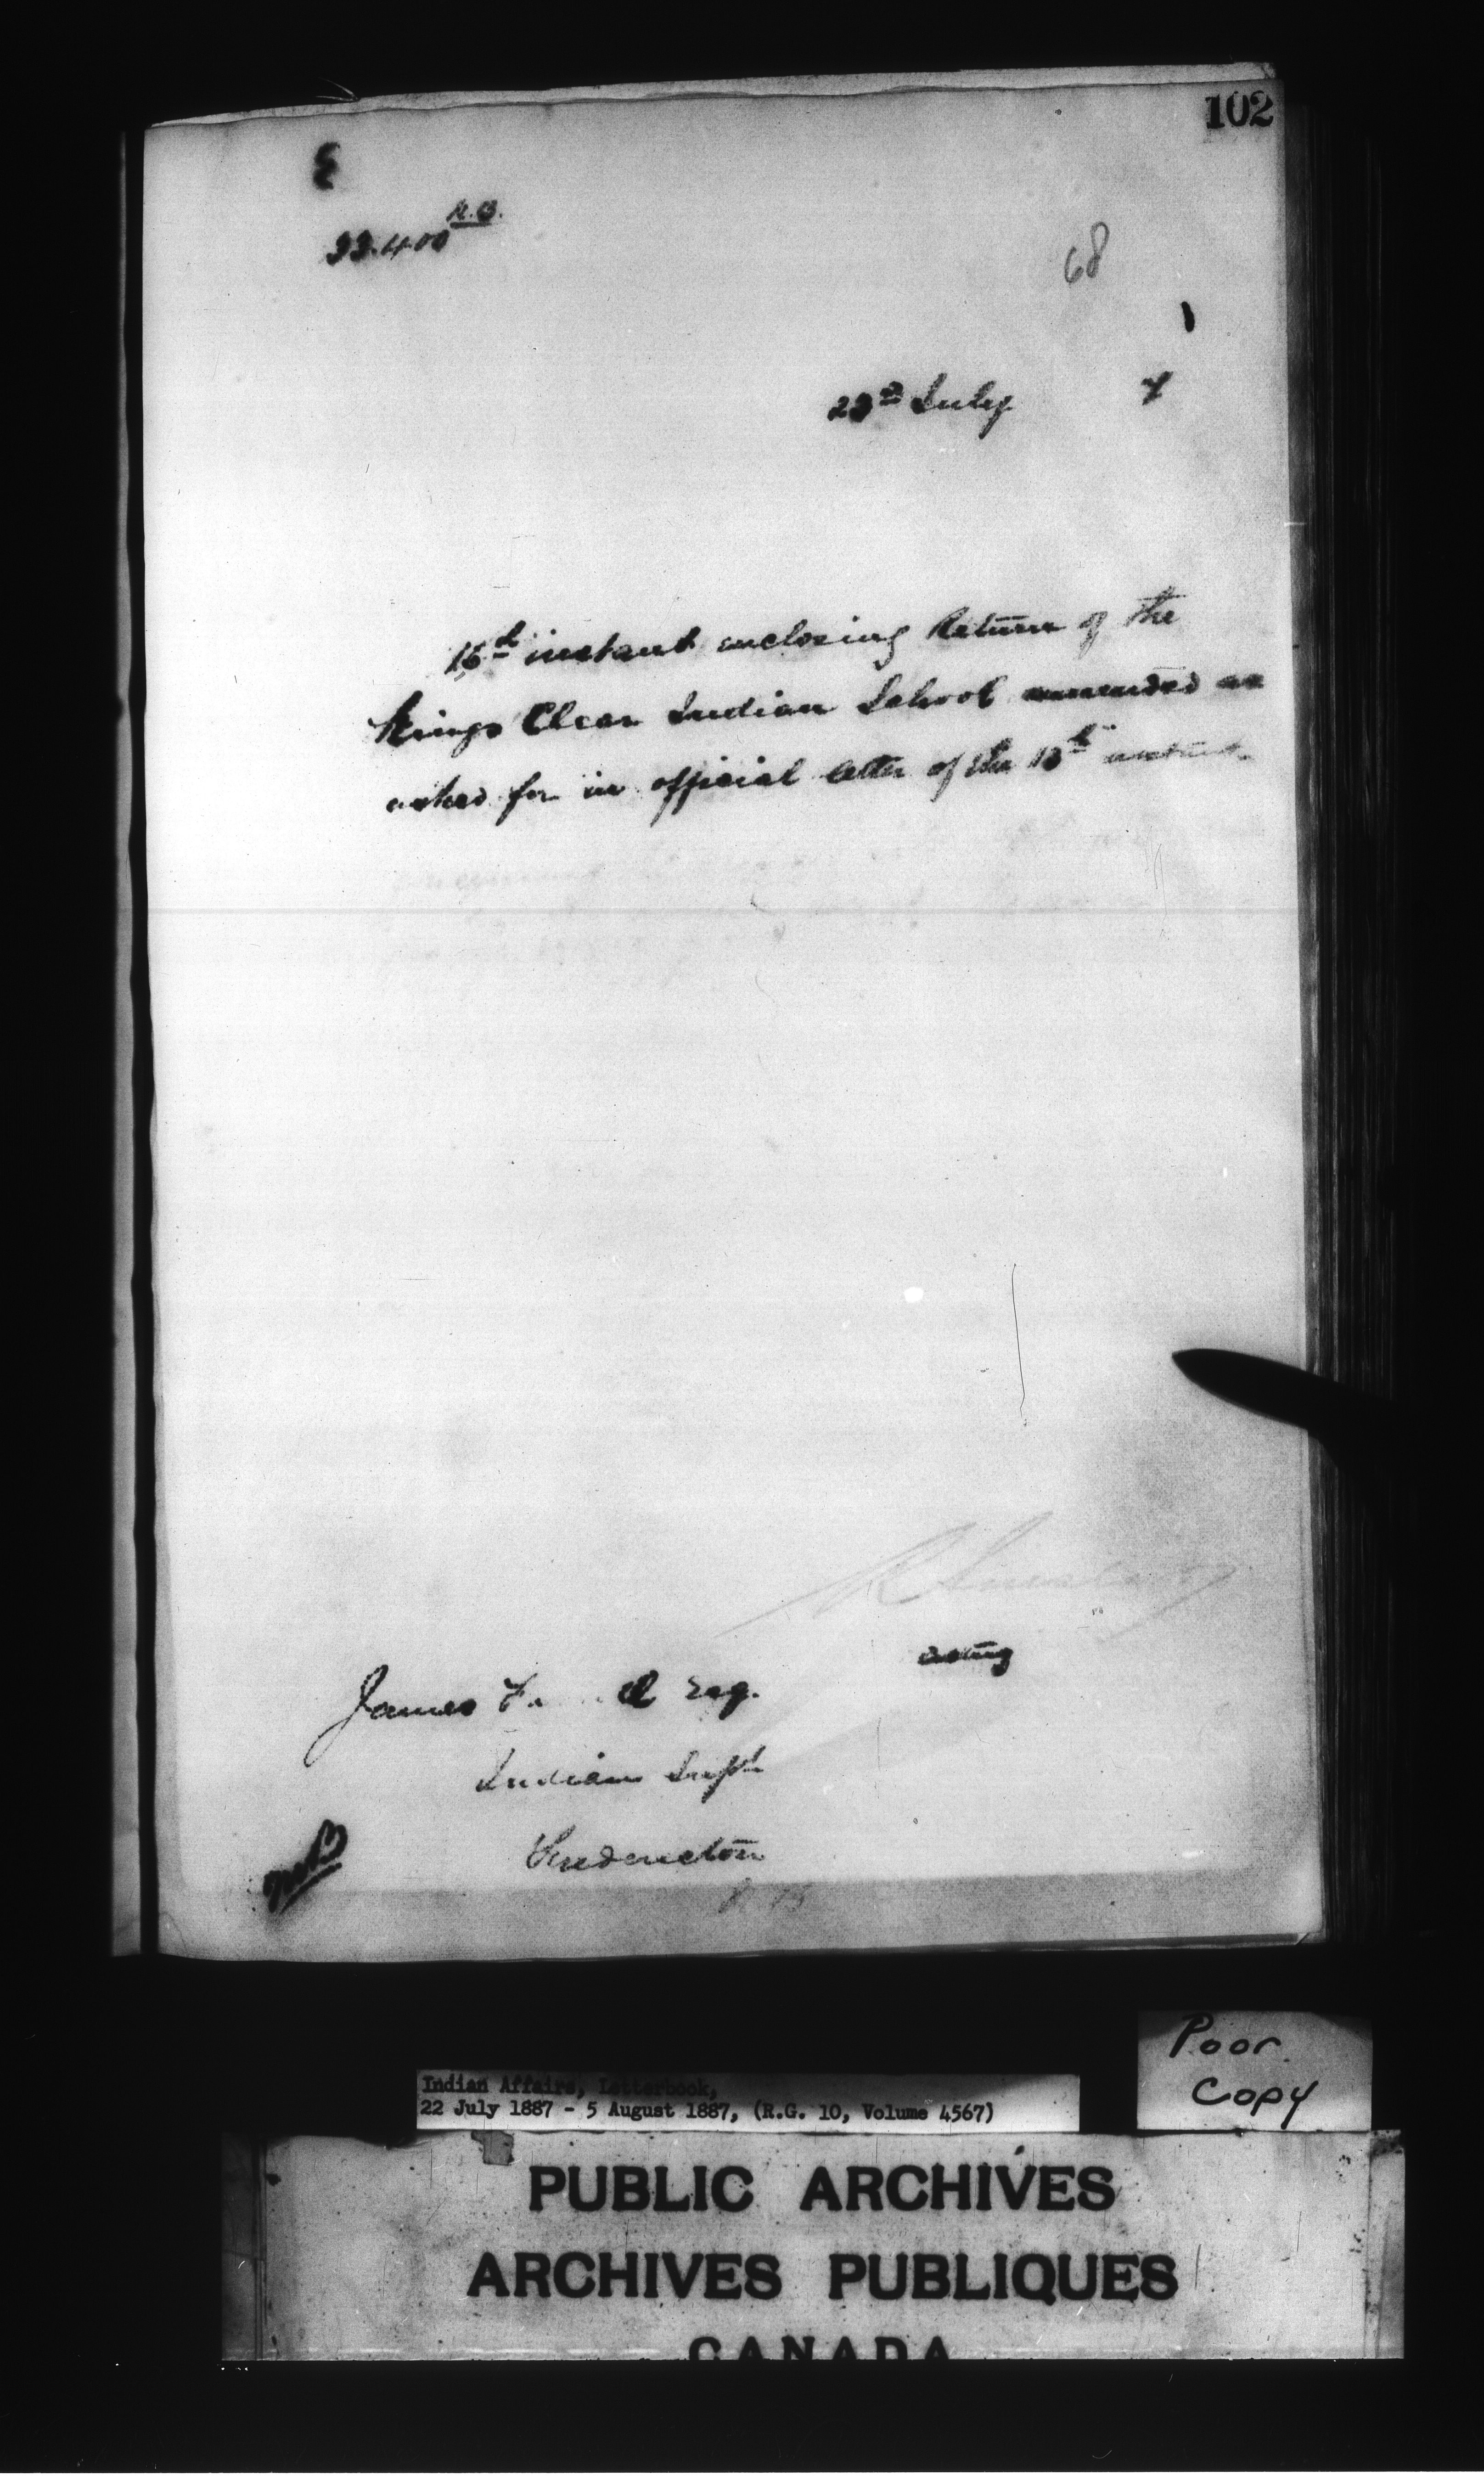 102
33.400
68
23rd July 7
16th instant enclosing Return of the
Kings Clear Indian School ammended as
asked for in official letter of the 13th instant.
acting
James F Esq.
Indian Supt
Fredericton
N.B
Poor
Copy
Indian Affairs, Letterbook,
22 July 1887 - 5 August 1887, (R.G. 10, Volume 4567)
PUBLIC ARCHIVES
ARCHIVES PUBLIQUES
CANADA